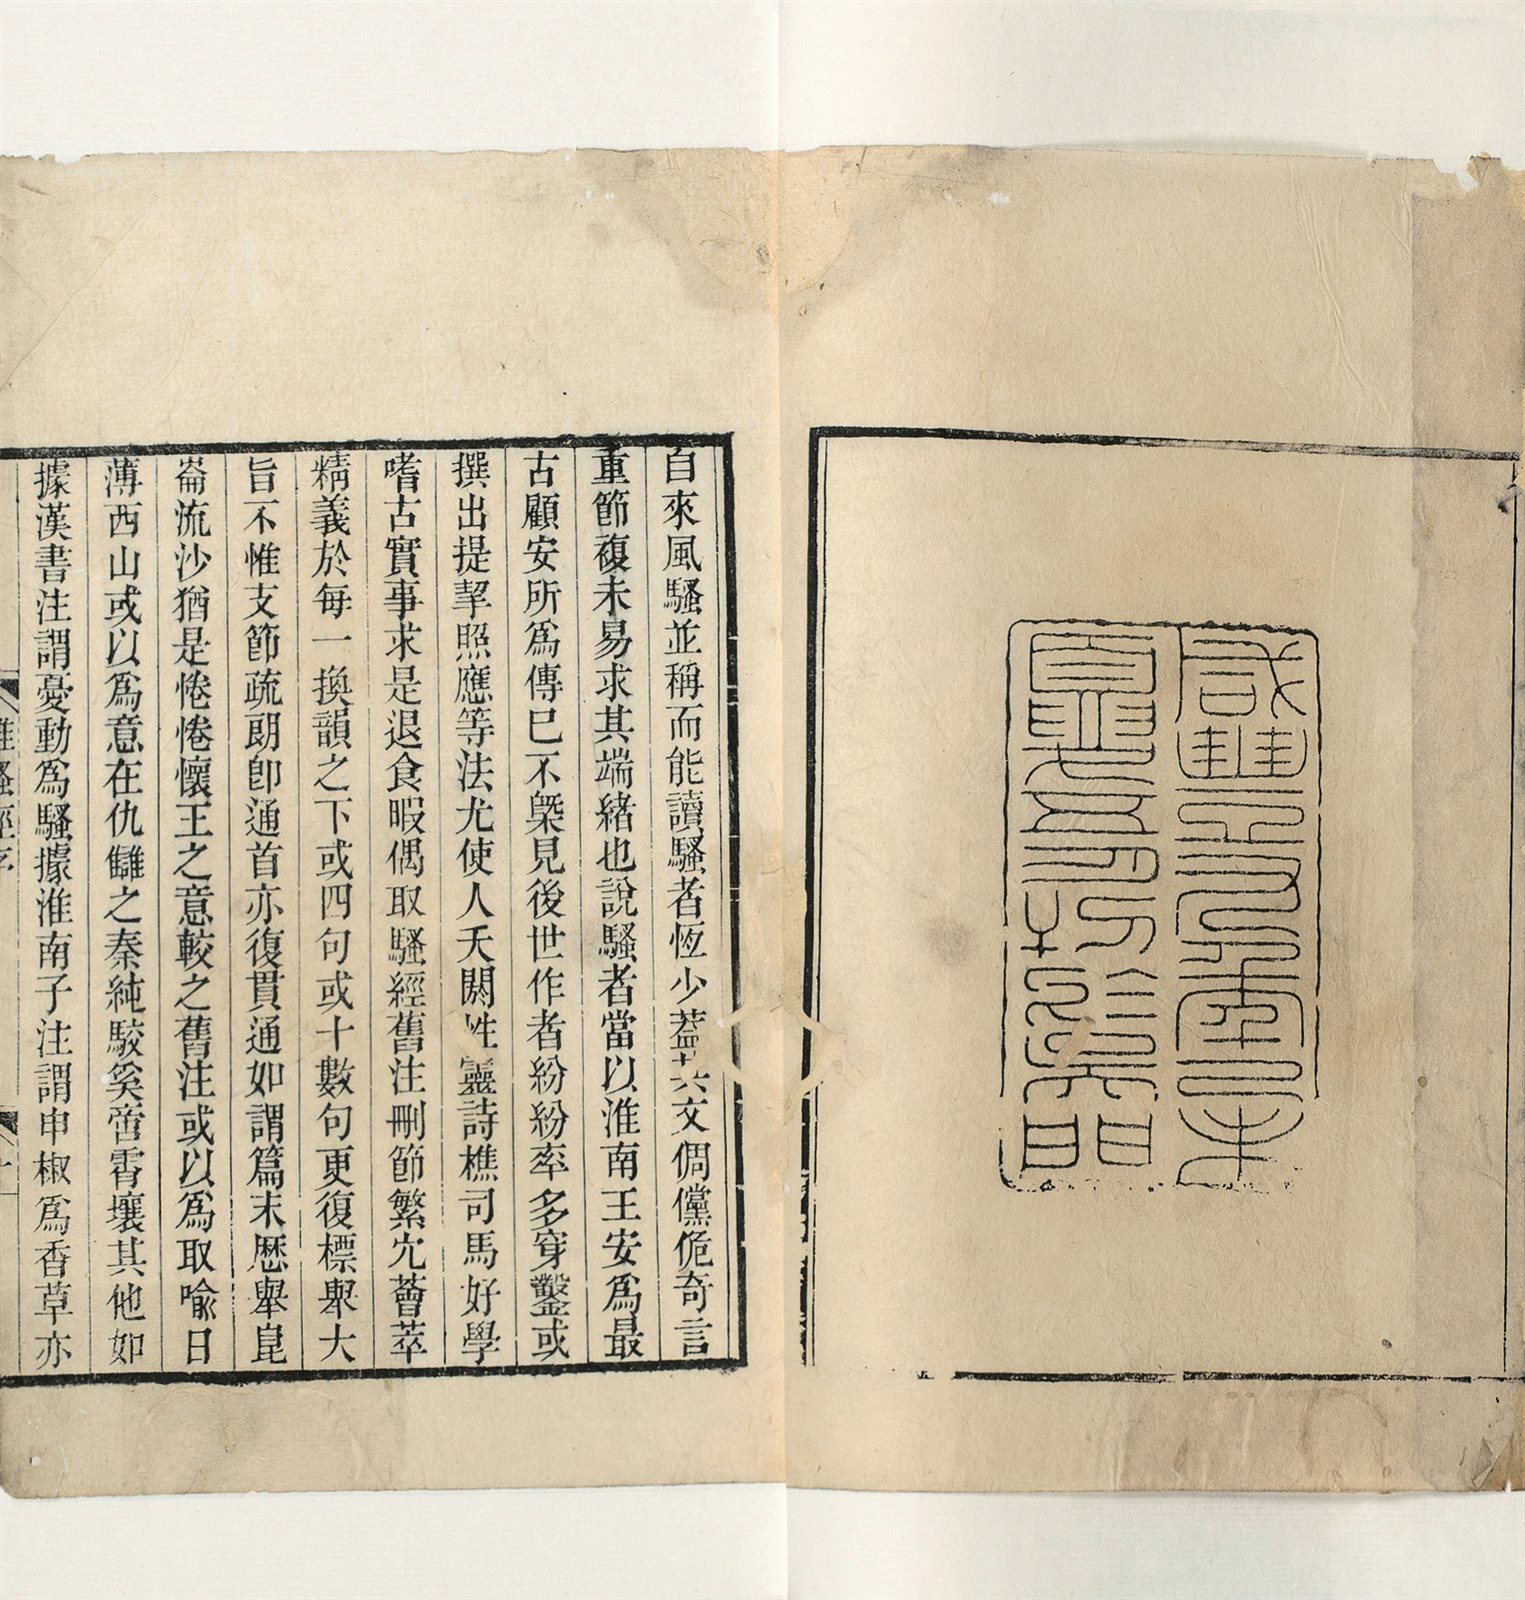 咸豐
自來風騷並稱而能讀騷者恆少蓋其文倜儻佹奇言
重節複未易求其端緒也說騷者當以淮南王安爲最
古顧安所爲傳已不槩見後世作者紛紛率多穿鑿或
撰出提挈照應等法尤使人夭閼性靈詩樵司馬好學
嗜古實事求是退食暇偶取騷經舊注刪節繁宂薈萃
精義於每一換韻之下或四句或十數句更復標舉大
旨不惟支節疏朗卽通首亦復貫通如謂篇末歷舉崑
崙流沙猶是惓惓懷王之意較之舊注或以爲取喻日
薄西山或以爲意在仇讎之秦純駮奚啻霄壤其他如
據漢書注謂憂動爲騷據淮南子注謂申椒爲香草亦
離騷經序